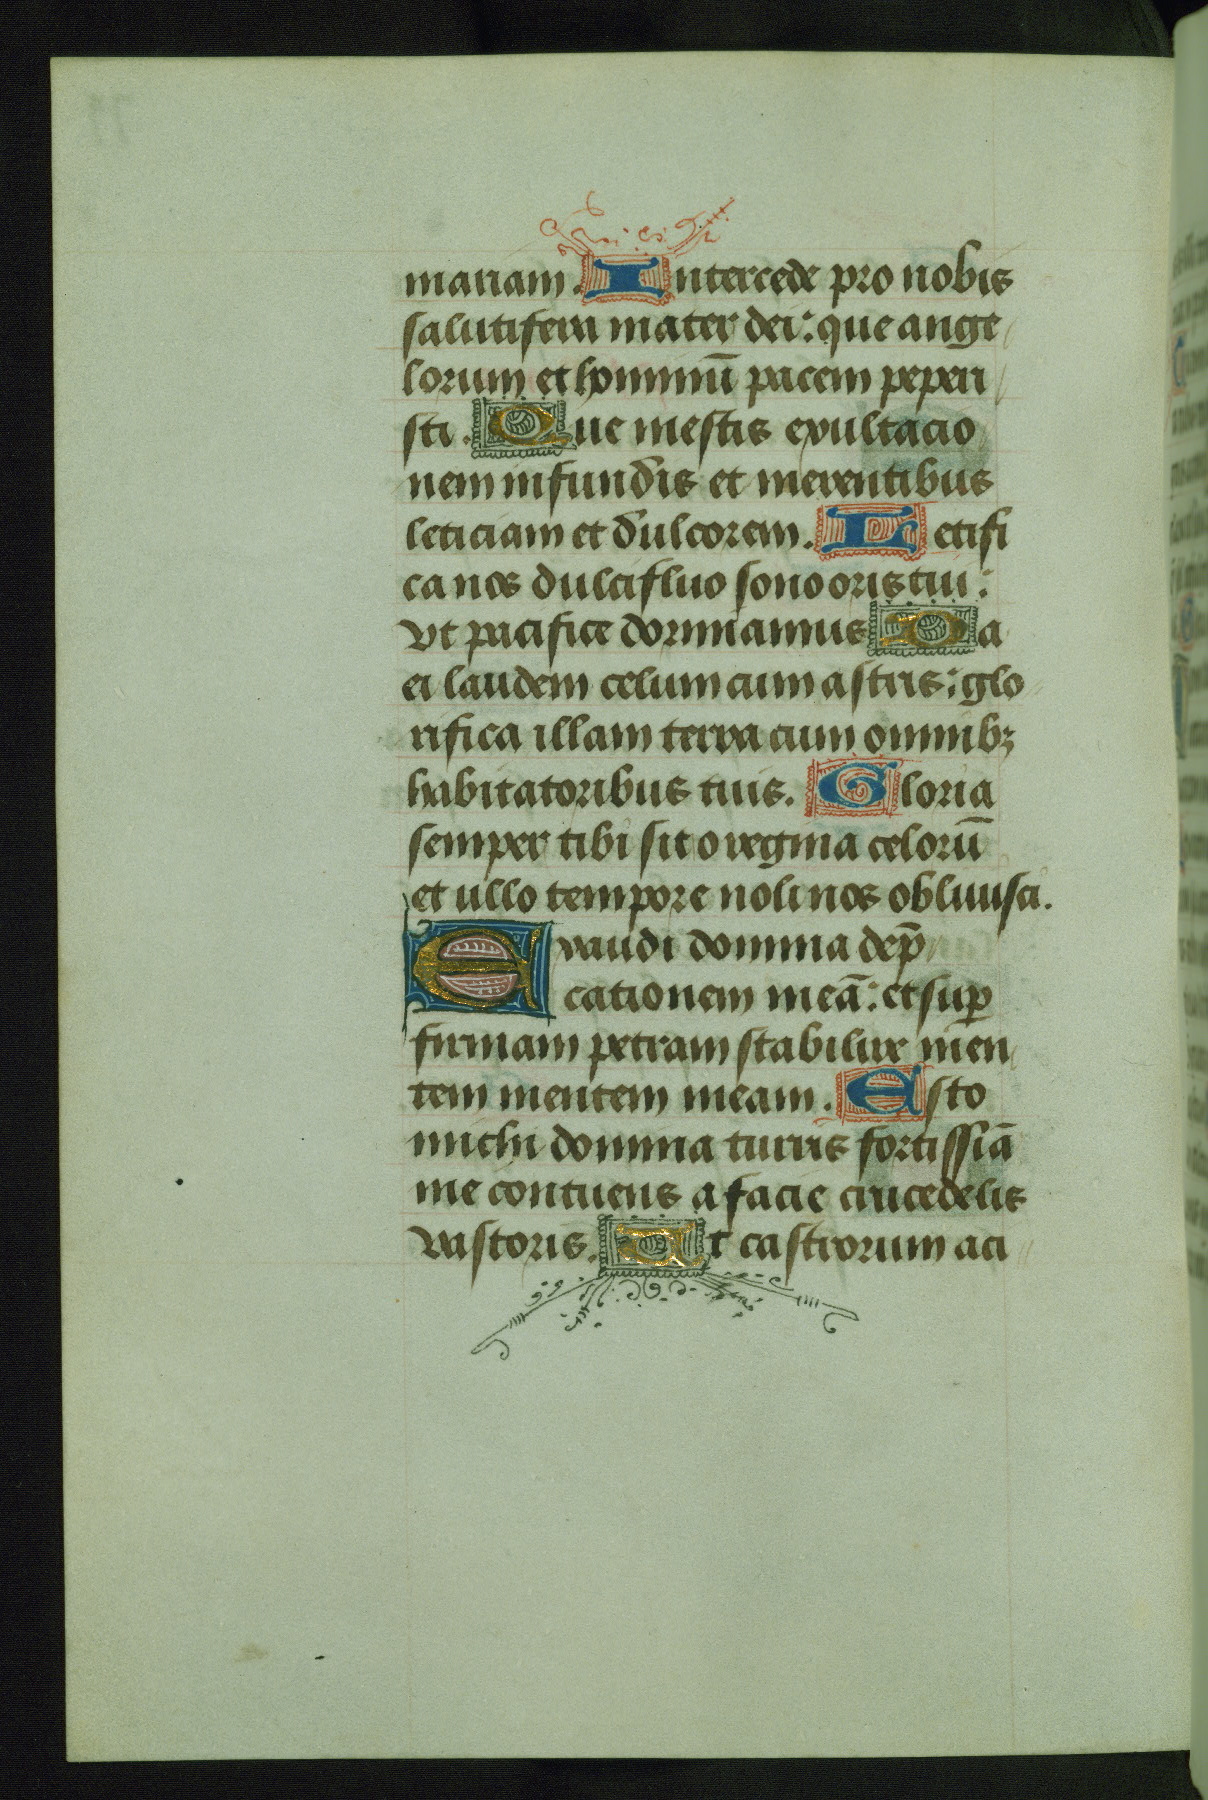 mariam. Intercede pro nobis
salutifera mater dei: que ange
lorum et hominū pacem peperi
sti. Que mestis exultacio
nem infundis et merentibus
leticiam et dulcorem. Letifi
ca nos dulcifluo sono oris tui:
vt pacifice dormiamus Da
ei laudem celum cum astris: glo
rifica illam terra cum omnibꝫ
habitatoribus tuis. Gloria
semper tibi sit o regina celorū
et ullo tempore noli nos obliuisci.
Exaudi domina dep̄
cationem meā: et suꝑ
firmam petram stabilire men
tem mentem meam. Esto
michi domina turris fortissiā
me contuens a facie crucedelis
vastoris. Vt castrorum aci